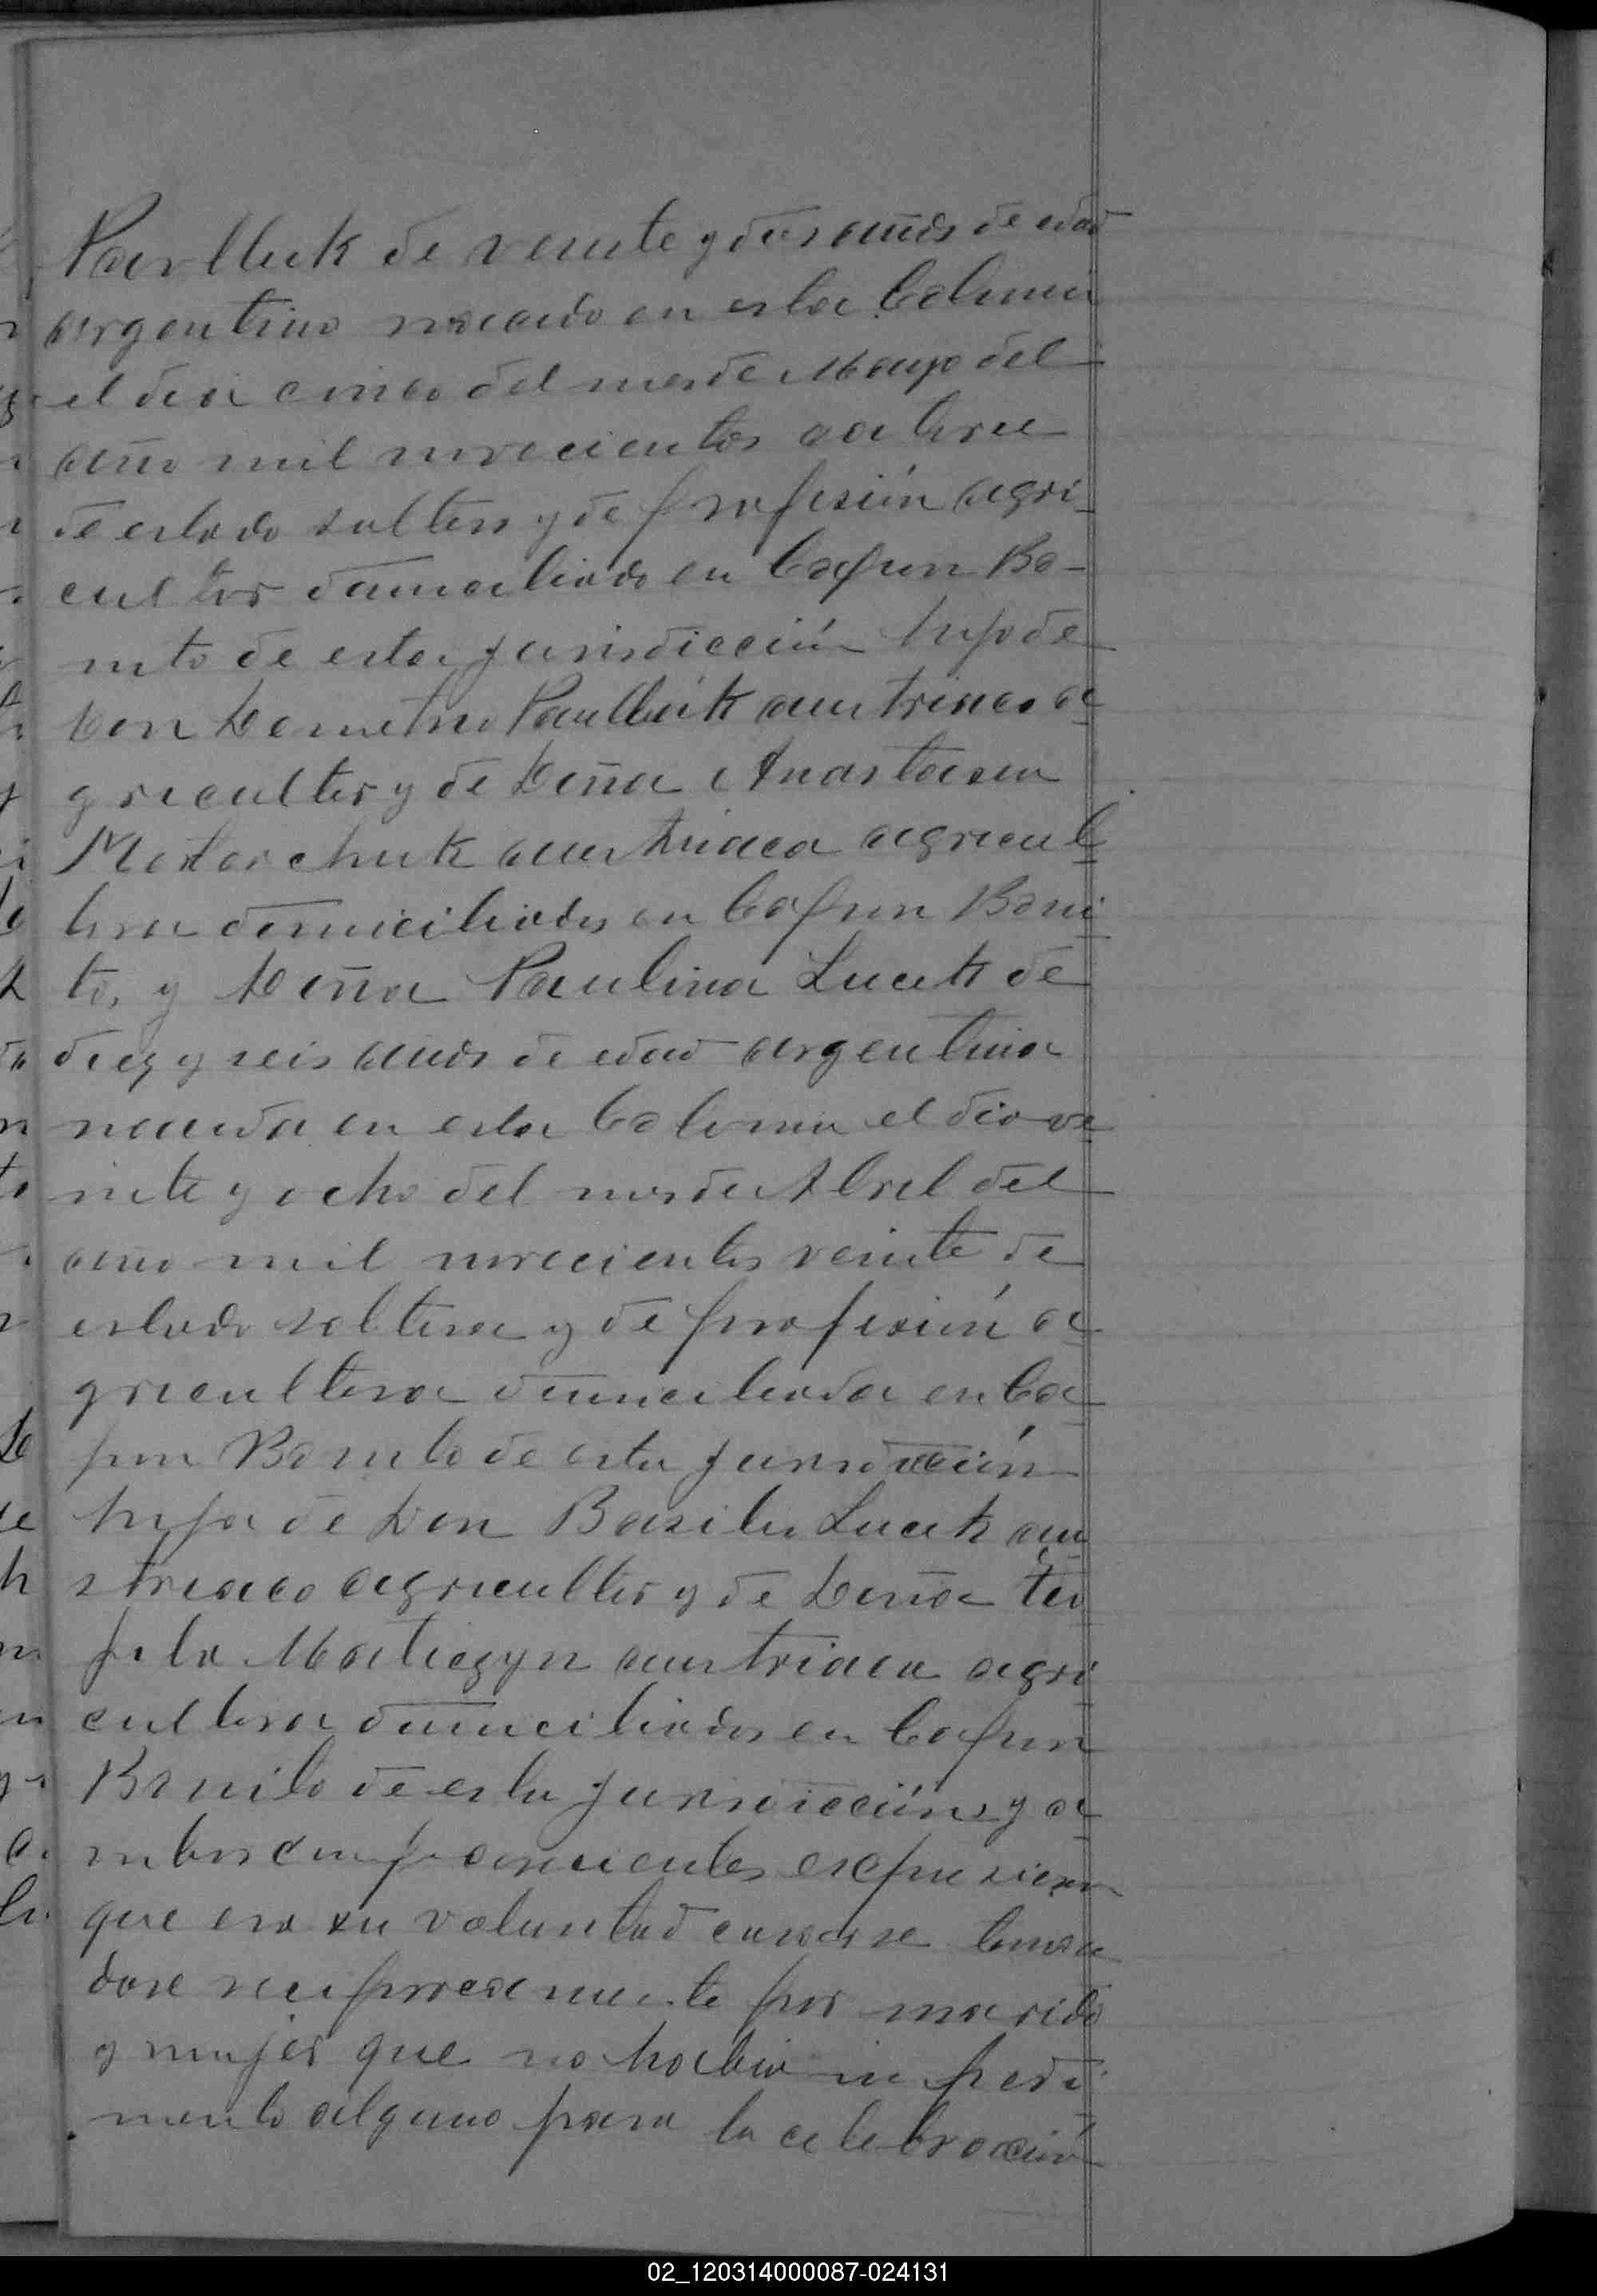 Pawlluk de veinte y dos años de edad
argentino nacido en esta Colonia
el dia cinco del mes de Mayo del
año mil novecientos catorce
de estado soltero y de profesión agri
cultor domiciliado en Capon Bo-
nito de esta jurisdicción hijo de
Don Demetrio Pawlluk austriaco a
gricultor y de Doña Anastacia
Mostarchuk austriaca agricul
tora domiciliados en Capon Boni
to, y Doña Paulina Lucuk de
diez y seis años de edad argentina
nacida en esta Colonia el dia ve
inte y ocho del mes de Abril del
año mil novecientos veinte de
estado soltera y de profesión a
gricultora domiciliada en Ca
pon Bonito de esta jurisdicción
hija de Don Basilio Lucuk au
striaco agricultor y de Doña Teo
fila Matiezyn austriaca agri
cultora domiciliados en Capon
Bonito de esta jurisdicción y a
mbos comparecientes expusieron
que era su voluntad casarse toman
dose reciprocamente por marido
y mujer que no habia impedi
mento alguno para la celebración
02_120314000087-024131